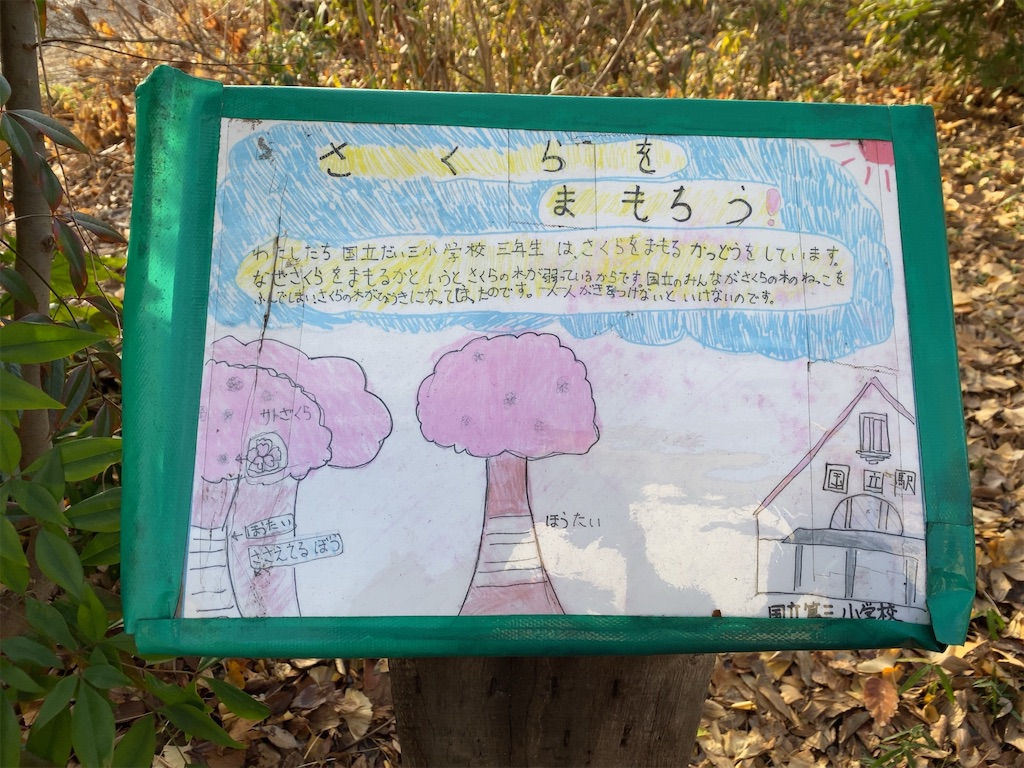 さくらを
まもろう!
わたしたち 国立だい三小学校 三年生 は、さくらをまもる かつどうを しています。
なぜさくらをまもるかと いうと さくらの木が弱っているからです。国立のみんながさくらの木の ねっこを
ふんでしまい、さくらの木がびょうきになってしまったのです。一人一人がきをつけないと いけないのです。
サトざくら
ほうたい
ささえてるぼう
ほうたい
国立駅
国立第三小学校